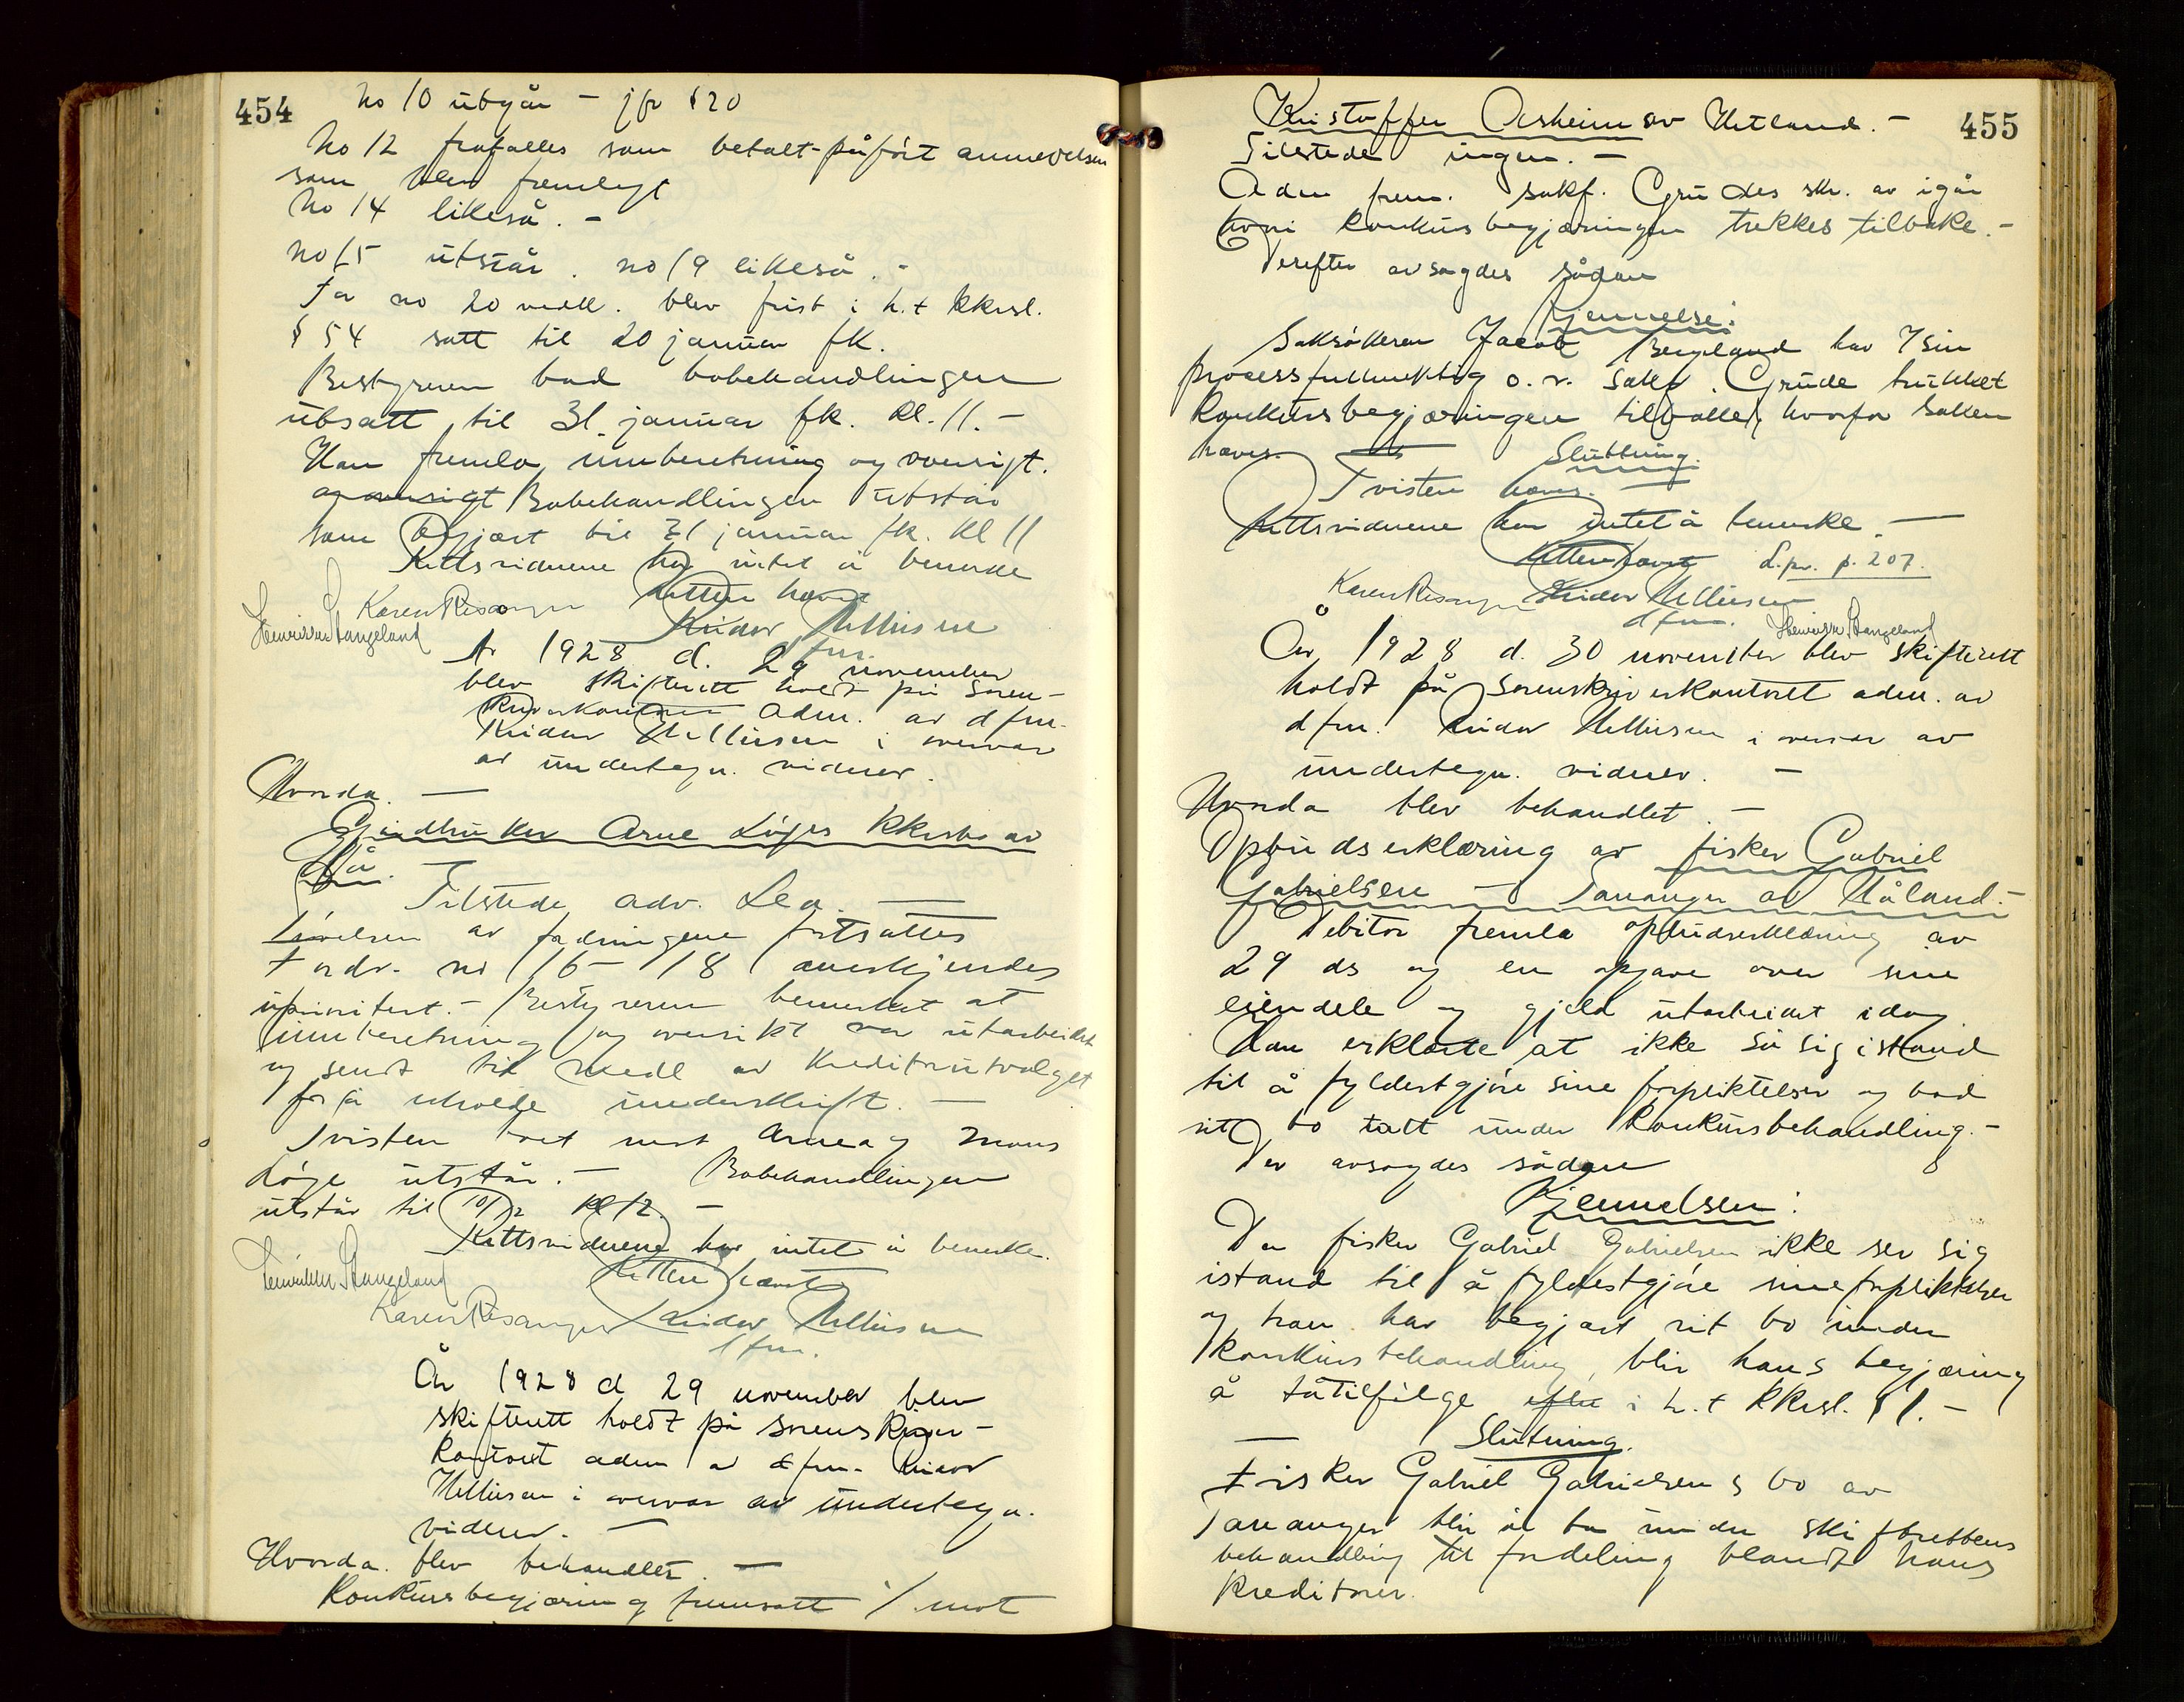 454
No 10 utgår - jfr § 20
No 12 frafalles som betalt - påført anmeldelsen
som blev fremlagt
No 14 likeså. -
no 15 utstår. no 19 likeså. -
For no 20 vedk. blev frist i h.t kkrsl.
§ 54 satt til 20 januar fk.
Bestyreren bad bobehandlingen
utsatt til 31. januar fk. kl. 11. -
Han fremla innberetning og oversigt.
og oversigt Bobehandlingen utstår
som begjært til 31 januar fk. kl 11
Rettsvidnene har intet å bemerke
Retten hævet
Karen Risanger
Reidar Mellinsen
Henriksen Stangeland
fm.
År 1928 d. 29 november
blev skifterett holdt på soren-
skriverkontoret adm. av dfm.
Reidar Mellinsen i overvær
av undertegn. vidner.
Hvorda. -
Gårdbruker Arne Løges kkrsbo av
Tilstede adv. Lea. -
Prøvelsen av fordringene fortsattes
Fordr. no 16 - 18 anerkjendes
uprioritert. - Bestyreren bemerket at
innberetning og oversikt var utarbeidet
og sendt til medl av kreditorutvalget
for å erholde underskrift. -
Tvisten vedr mot Arne og Mons
Løge utstår. - Bobehandlingen
utstår til 10/12 kl 12. -
Rettsvidnene har intet å bemerke.
Retten hævet
Henriksen Stangeland
Karen Risanger Reidar Mellinsen
dfm.
År 1928 d 29 november blev
skifterett holdt på sorenskriver-
kontoret adm av dfm. Reidar
Mellinsen i overvær av undertegn.
vidner. -
Hvorda blev behandlet. -
Konkursbegjæring fremsatt i/ mot
455
Kristoffer Aasheim av Hetland. -
Tilstede ingen. -
Adm frem. sakf. Grudes skr. av igår
hvori konkursbegjæringen trekkes tilbake. -
Derefter avsagdes sådan
Kjennelse:
Saksøkeren Jacob Bergeland har v/ sin
processfullmektig o.r. sakf. Grude trukket
konkursbegjæringen tilbake, hvorfor saken
hæves.
Slutning.
Tvisten hæves. -
Rettsvidnene har intet å bemerke. -
Retten hævet D.pr. p. 207.
Karen Risanger Reidar Mellinsen
dfm. Henriksen Stangeland
År 1928 d. 30 november blev skifterett
holdt på sorenskriverkontoret adm. av
dfm. Reidar Mellinsen i overvær av
undertegn. vidner. -
Hvorda blev behandlet. -
Opbudserklæring av fisker Gabriel
Gabrielsen - Tananger av Håland. -
Debitor fremla opbudserklæring av
29 ds og en opgave over sine
eiendele og gjeld utarbeidet idag
Han erklærte at ikke så sig istand
til å fyldestgjøre sine forpliktelser og bad
sit bo tatt under konkursbehandling. -
Der avsagdes sådan
Kjennelsen:
Da fisker Gabriel Gabrielsen ikke ser sig
istand til å fyldestgjøre sine forpliktelser
og han har begjært sit bo under
konkursbehandling, blir hans begjæring
å ta tilfølge efter i h.t kkrsl. § 1. -
- Slutning.
Fisker Gabriel Gabrielsens bo av
Tananger blir å ta under skifterettens
behandling til fordeling blandt hans
kreditorer.